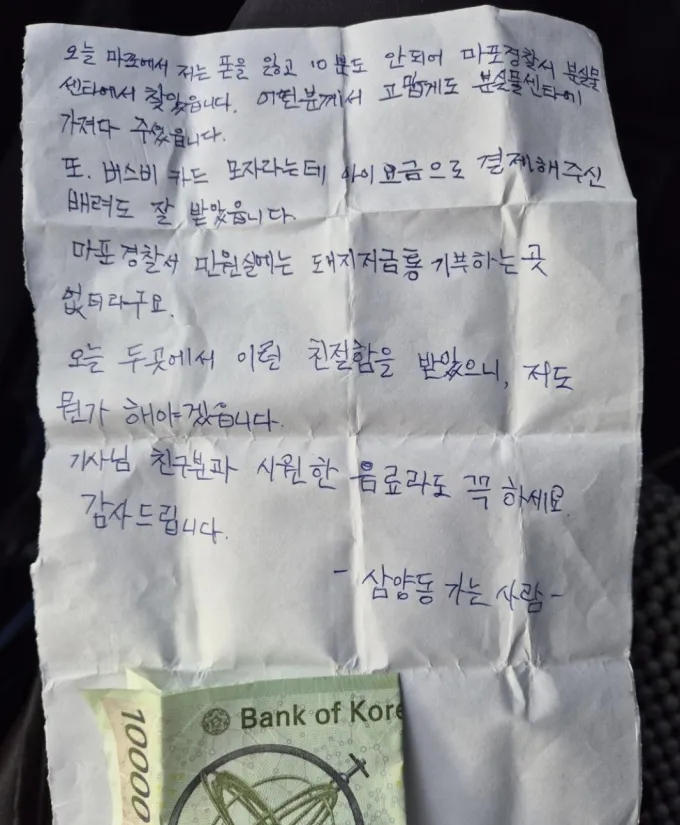 오늘 마포에서 저는 폰을 잃고 10분도 안되어 마포경찰서 분실물
센타에서 찾았읍니다. 어떤분께서 고맙게도 분실물센타에
가져다 주셨읍니다.
또. 버스비 카드 모자라는데 아이요금으로 결제해주신
배려도 잘 받았읍니다.
마포경찰서 민원실에는 돼지저금통 기부하는 곳
없더라구요.
오늘 두곳에서 이런 친절함을 받았으니, 저도
뭔가 해야겠읍니다.
기사님 친구분과 시원한 음료라도 꼭 하세요.
감사드립니다.
- 삼양동 가는 사람 -
Bank of Kore
10000